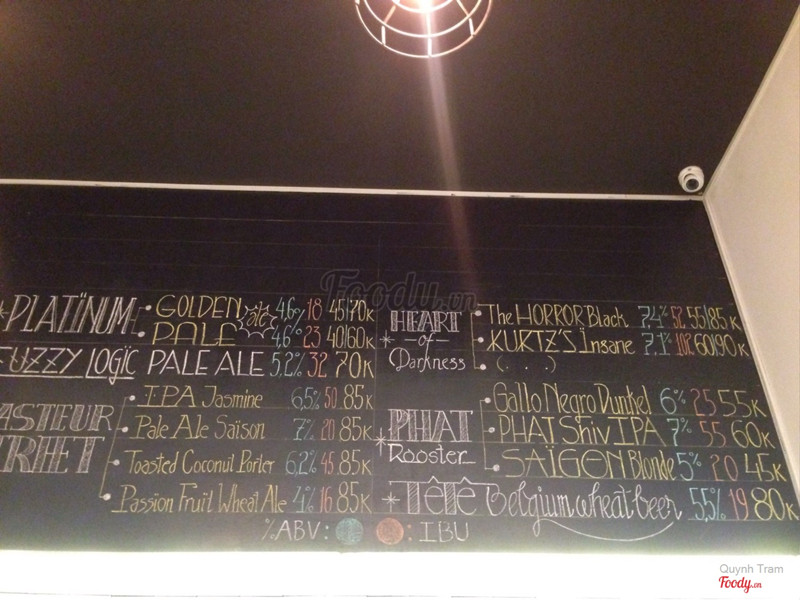 PLATINUM
GOLDEN ale 4.6% 18 45/70K
PALE 4.6% 23 40/60K
FUZZY LOGIC PALE ALE 5.2% 32 70K
ASTEUR
TREET
IPA Jasmine 6,5% 50 85K
Pale Ale Saison 7% 20 85K
Toasted Coconut Porter 6,2% 85K
Passion Fruit Wheat Ale 4% 16 85K
HEART
-of-
Darkness
The HORROR Black 7,4% 52 55/85K
KURTZ'S Insane 7.1% 102 60/90K
(. . .)
PHAT
Rooster
Gallo Negro Dunkel 6% 25 55K
PHAT Shiv IPA 7% 55 60K
SAIGON Blonde 5% 20 45K
TÊTÊ Belgium wheat beer 5.5% 19 80K
%ABV: IBU
Foody.vn
Quynh Tram
Foody.vn